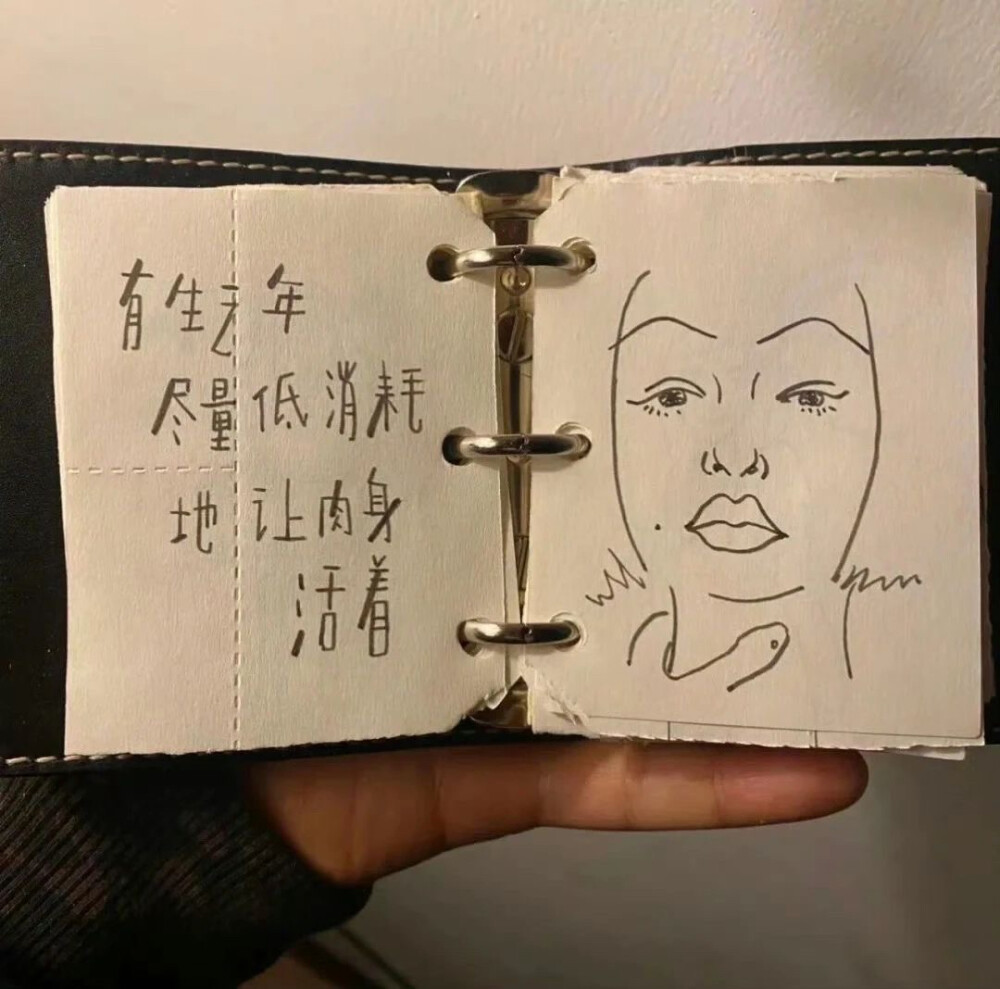 有生之年
尽量低消耗
地让肉身
活着